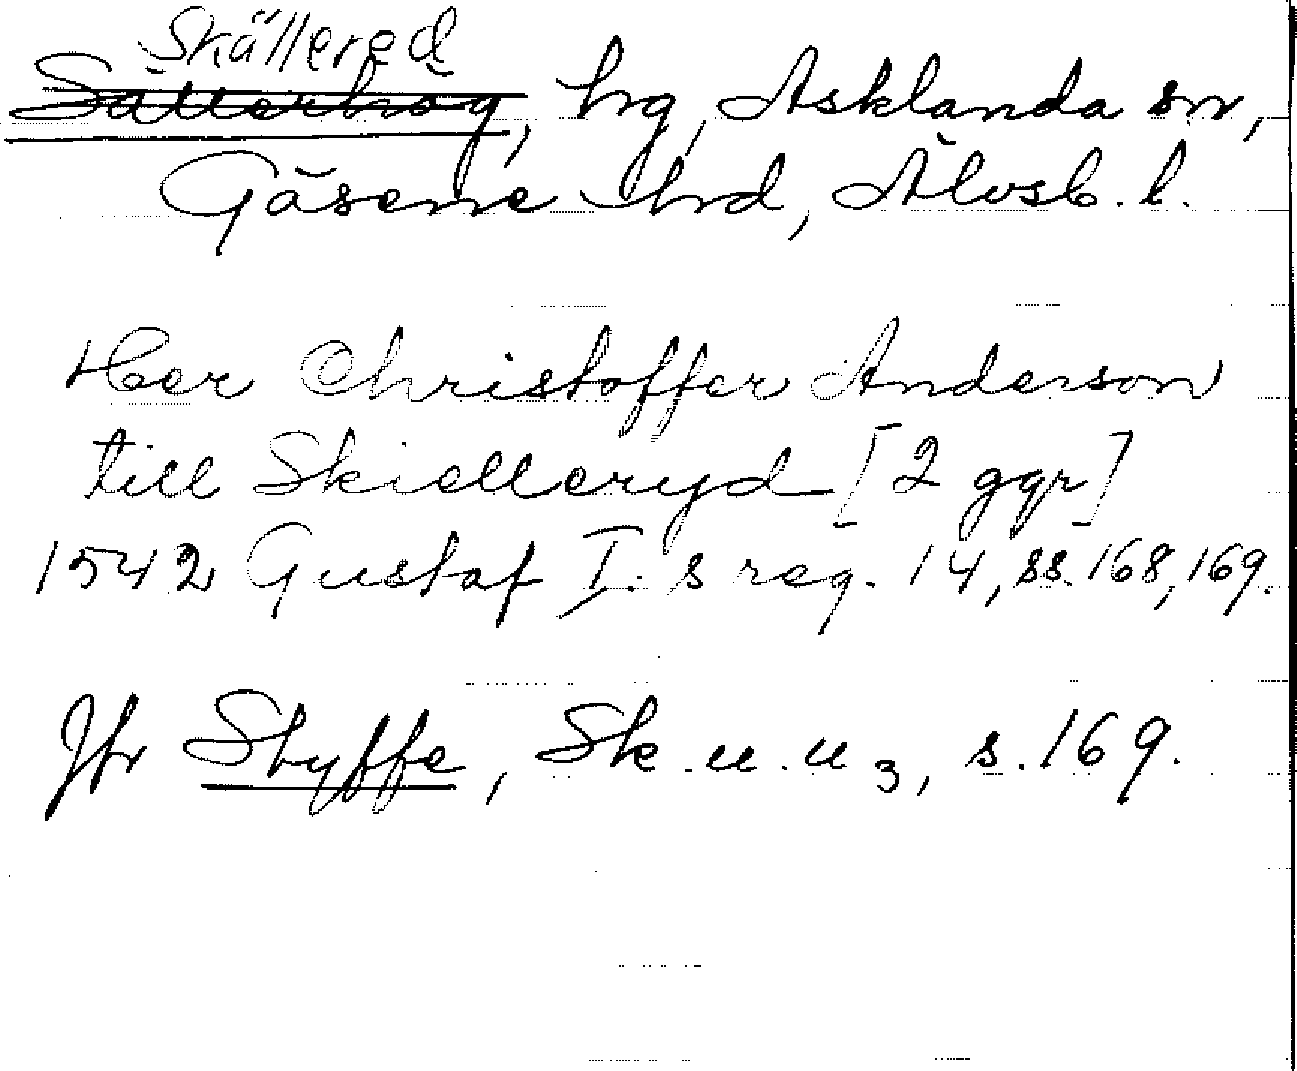 Skällered
Sätterhög, hg, Asklanda sn,
Gäsene hrd, Älvsb. l.
Her Christoffer Anderson
till Skielleryd [2 ggr]
1542 Gustaf I:s reg. 14, ss. 168, 169.
Jfr Styffe, Sk. u. u 3, s. 169.